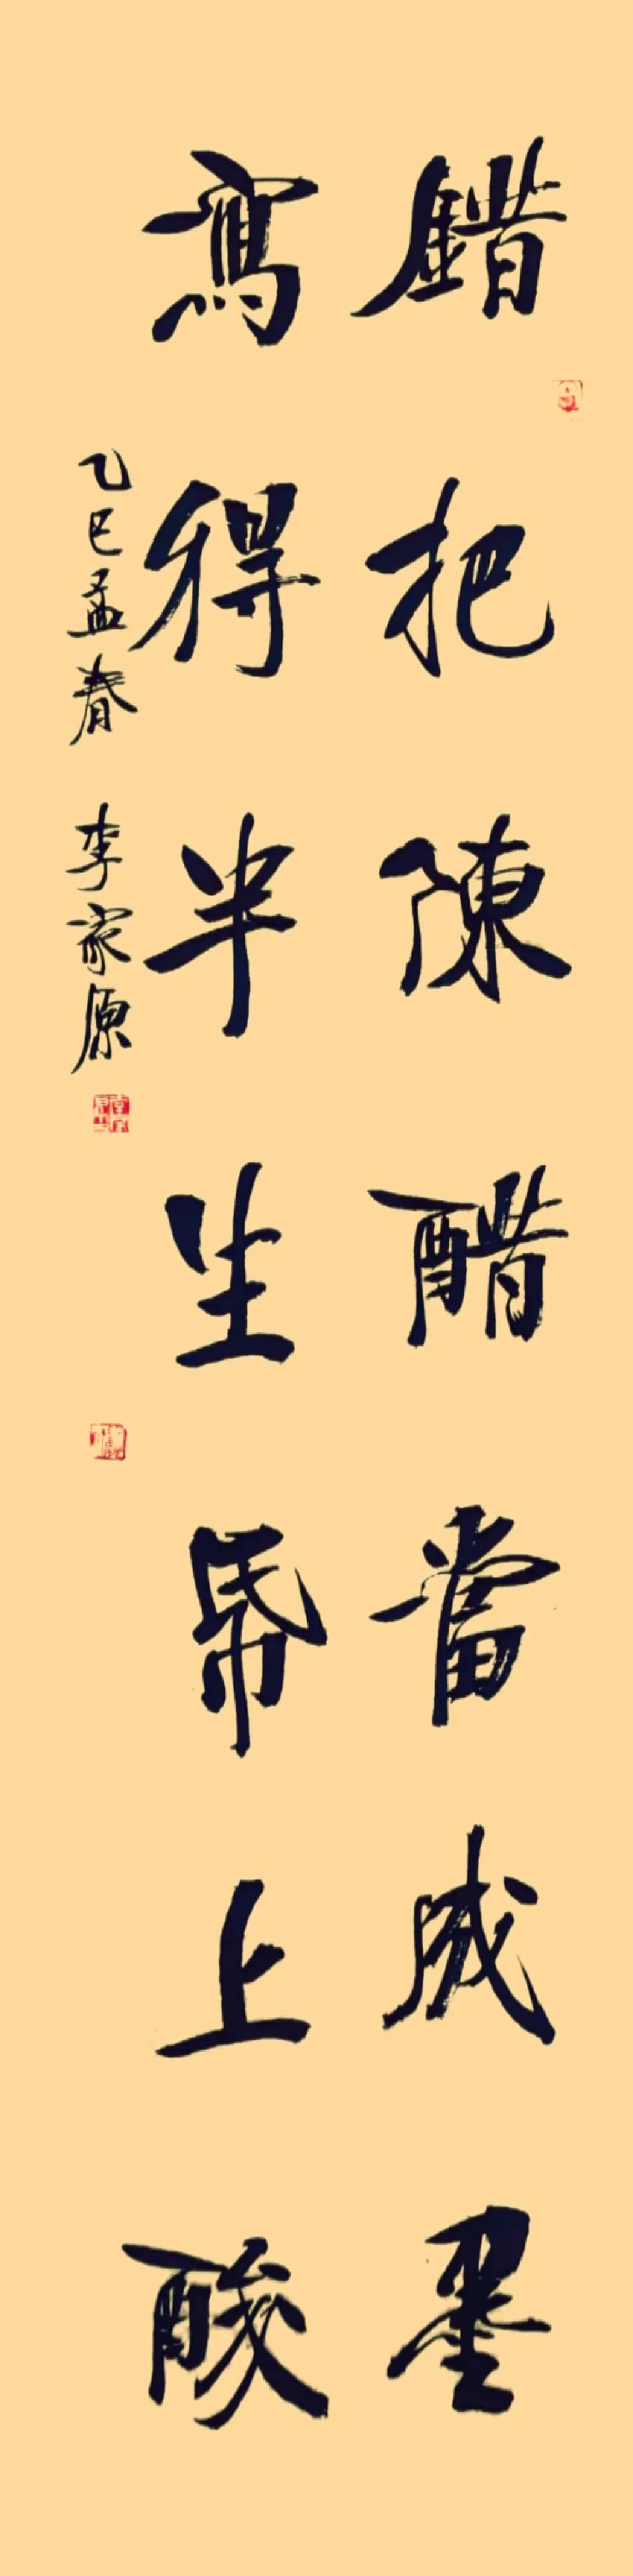 錯把陳醋當成墨
寫得半生帋上酸
乙巳孟春 李家原